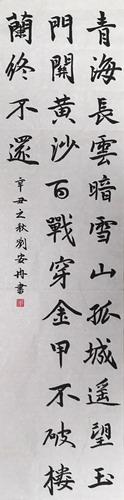 青海長雲暗雪山孤城遥望玉
門關黄沙百戰穿金甲不破樓
蘭終不還
辛丑之秋劉安冉書